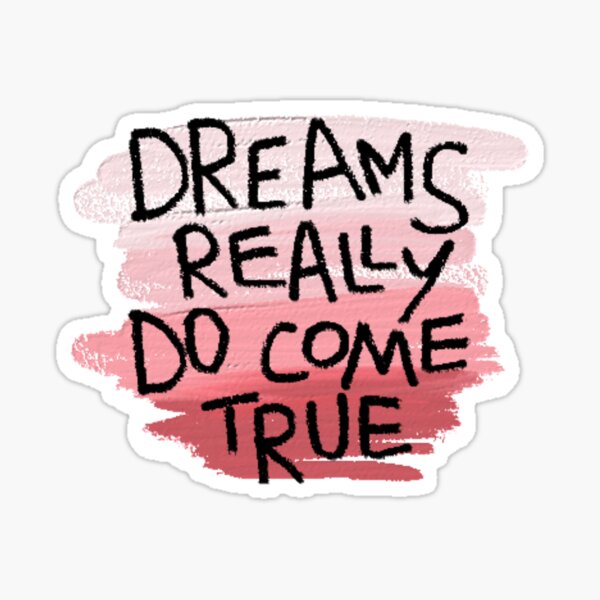 DREAMS
REALLY
DO COME
TRUE